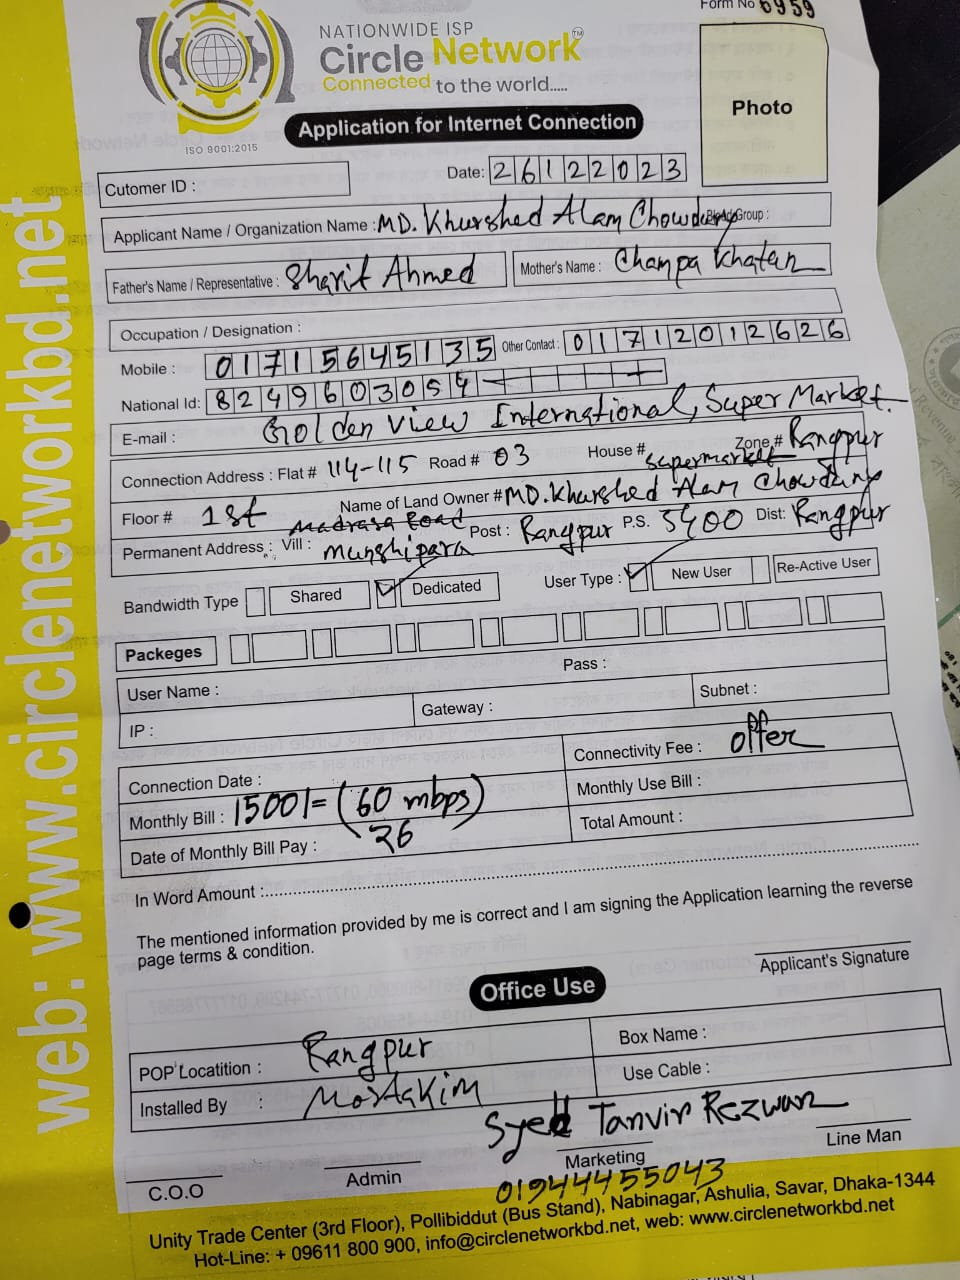 Form No 6959
NATIONWIDE ISP
Circle Network™
Connected to the world.....
ISO 9001:2015
Application for Internet Connection
Photo
Cutomer ID :
Date: 26122023
Applicant Name / Organization Name : MD. Khurshed Alam Chowdury Blood Group :
Father's Name / Representative : Sharif Ahmed Mother's Name : Champa Khatan
Occupation / Designation :
Mobile : 01715645135 Other Contact : 01712012626
National Id: 8249603054
E-mail : Golden view International, Super Market.
Connection Address : Flat # 114-115 Road # 03 House # supermarket Zone # Rangpur
Floor # 1st Name of Land Owner # MD. Khurshed Alam Chowdury
Permanent Address : Vill : Madrasa Road Munshipara Post : Rangpur P.S. 5400 Dist: Rangpur
Bandwidth Type Shared ✓ Dedicated User Type : ✓ New User Re-Active User
Packeges
User Name : Pass :
IP : Gateway : Subnet :
Connection Date : Connectivity Fee : Offer
Monthly Bill : 1500/= (60 mbps) Monthly Use Bill :
Date of Monthly Bill Pay : 26 Total Amount :
In Word Amount :
The mentioned information provided by me is correct and I am signing the Application learning the reverse
page terms & condition.
Applicant's Signature
Office Use
POP Locatition : Rangpur Box Name :
Installed By : MostAkim Use Cable :
Syed Tanvir Rezwan
C.O.O Admin Marketing Line Man
01944455043
Unity Trade Center (3rd Floor), Pollibiddut (Bus Stand), Nabinagar, Ashulia, Savar, Dhaka-1344
Hot-Line: + 09611 800 900, info@circlenetworkbd.net, web: www.circlenetworkbd.net
web: www.circlenetworkbd.net